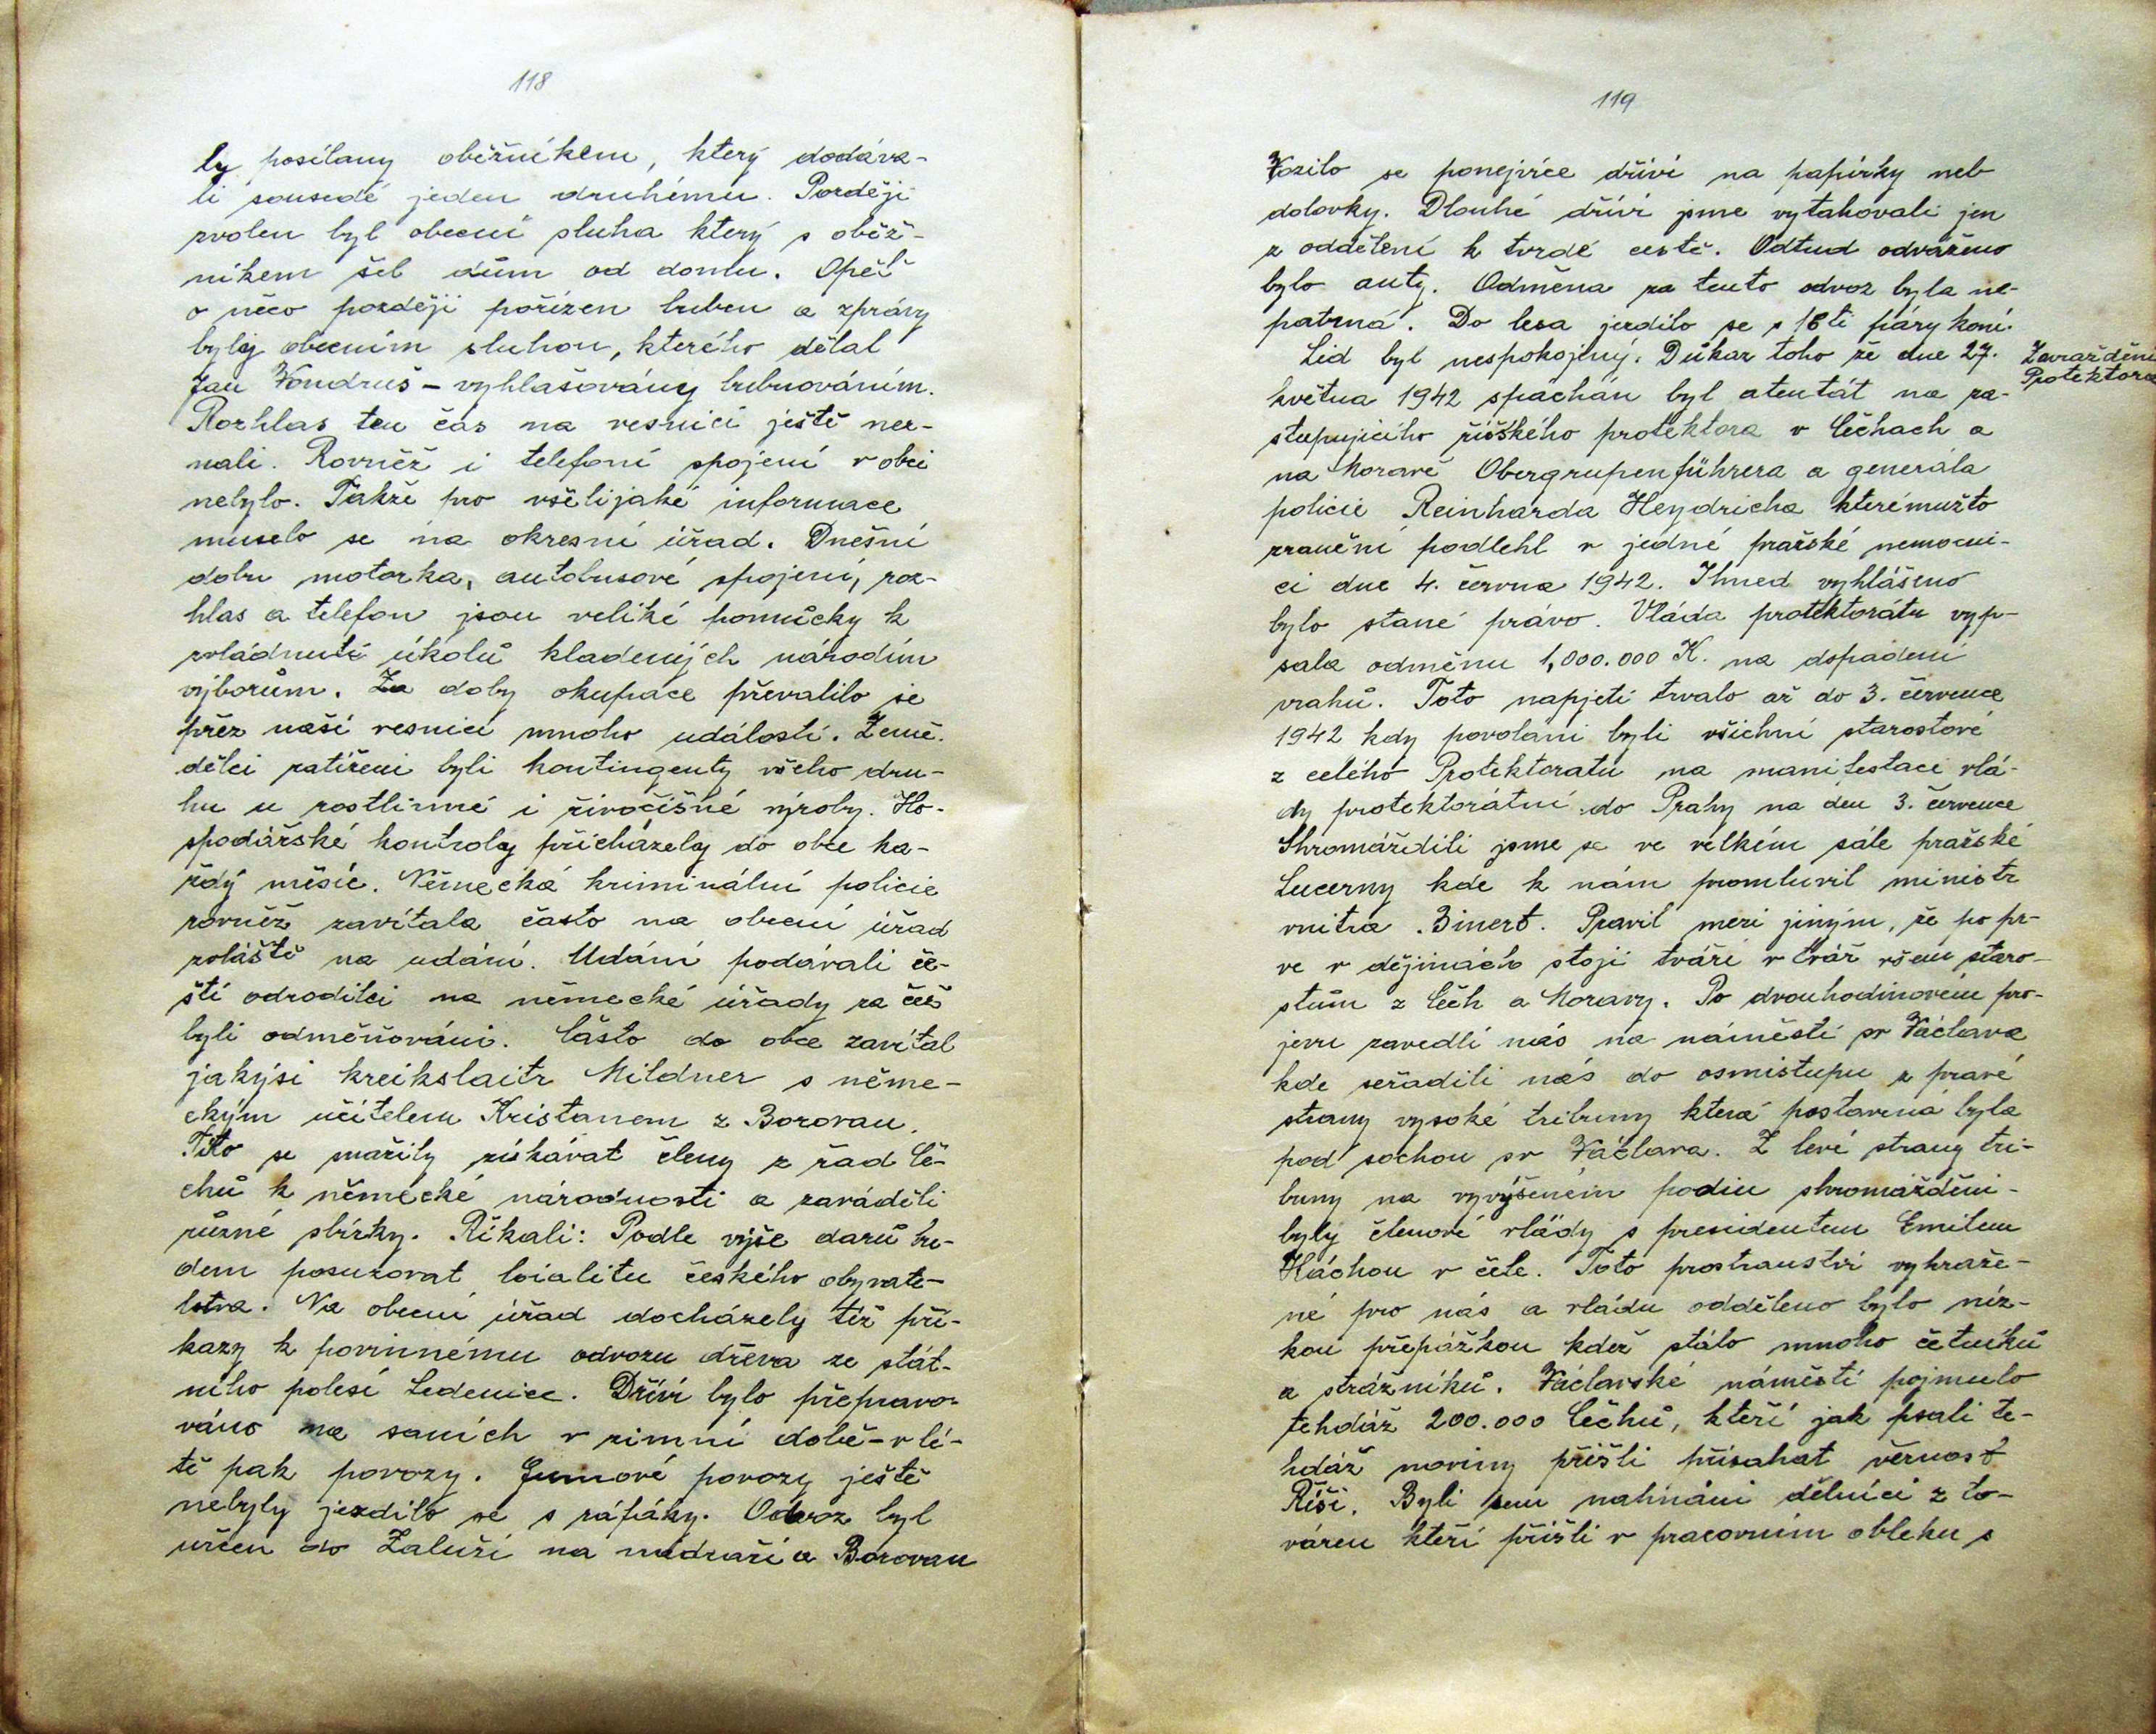 118
ly posílany oběžníkem, který dodáva-
li sousedé jeden druhému. Později
zvolen byl obecní sluha který s oběž-
níkem šel dům od domu. Opět
o něco později pořízen buben a zprávy
byly obecním sluhou, kterého dělal
Jan Vondruš – vyhlašovány bubnováním.
Rozhlas ten čas na vesnici ještě nez-
nali. Rovněž i telefoní spojení v obci
nebylo. Takže pro všelijaké informace
muselo se na okresní úřad. Dnešní
dobu motorka, autobusové spojení, roz-
hlas a telefon jsou veliké pomůcky k
zvládnutí úkolů kladených národím
výborům. Za doby okupace převalilo se
přez naší vesnici mnoho událostí. Země-
dělci zatíženi byli kontingenty všeho dru-
hu u rostlinné i živočišné výroby. Ho-
spodářské kontroly přicházely do obce ka-
ždý měsíc. Německá kriminální policie
rovněž zavítala často na obecní úřad
zvláště na udání. Udání podávali če-
ští odrodilci na německé úřady za což
byli odměňováni. Často do obce zavítal
jakýsi kreikslaitr Mildner s něme-
ckým učitelem Kristanem z Borovan.
Tito se snažily získávat členy z řad Če-
chů k německé národnosti a zaváděli
různé sbírky. Říkali: Podle výše darů bu-
dem posuzovat loialitu českého obyvate-
lstva. Na obecní úřad docházely též pří-
kazy k povinnému odvozu dřeva ze stát-
ního polesí Ledenice. Dříví bylo přepravo-
váno na saních v zimní době – v lé-
tě pak povozy. Gumové povozy ještě
nebyly jezdilo se s ráfáky. Odvoz byl
určen do Zaluží na nádraží a Borovan
119
Vozilo se ponejvíce dříví na papírky neb
dolovky. Dlouhé dříví jsme vytahovali jen
z oddělení k tvrdé cestě. Odtud odváženo
bylo auty. Odměna za tento odvoz byla ne-
patrná. Do lesa jezdilo se s 18ti páry koní.
Lid byl nespokojený. Důkaz toho že dne 27.
Zavraždění
Protektora
května 1942 spáchán byl atentát na za-
stupujícího říšského protektora v Čechach a
na Moravě Obergrupenführera a generála
policie Reinharda Heydricha kterémužto
zranění podlehl v jedné pražské nemocni-
ci dne 4. června 1942. Ihned vyhlášeno
bylo stané právo. Vláda protektorátu vyp-
sala odměnu 1,000.000 K. na dopadení
vrahů. Toto napjetí trvalo až do 3. července
1942 kdy povolani byli všichní starostové
z celého Protektoratu na manifestaci vlá-
dy protektorátní do Prahy na den 3. července
Shromáždili jsme se ve velkém sále pražské
Lucerny kde k nám promluvil ministr
vnitra Binert. Pravil mezi jiným, že po pr-
ve v dějinách stojí tváří v tvář všem staro-
stům z Čech a Moravy. Po dvouhodinovém pro-
jevu zavedli nás na náměstí sv Václava
kde seřadili nás do osmistupu z pravé
strany vysoké tribuny která postavená byla
pod sochou sv Václava. Z levé strany tri-
buny na vyvýšeném podiu shromážděni-
byly členové vlády s presidentem Emilem
Háchou v čele. Toto prostranství vyhraže-
né pro nás a vládu odděleno bylo níz-
kou přepážkou kdež stálo mnoho četníků
a strážníků. Václavské náměstí pojmulo
tehdáž 200.000 Čechů, kteří jak psali te-
hdáž noviny přišli přísahat věrnost
Říši. Byli sem nahnáni dělníci z to-
váren kteří přišli v pracovním obleku s